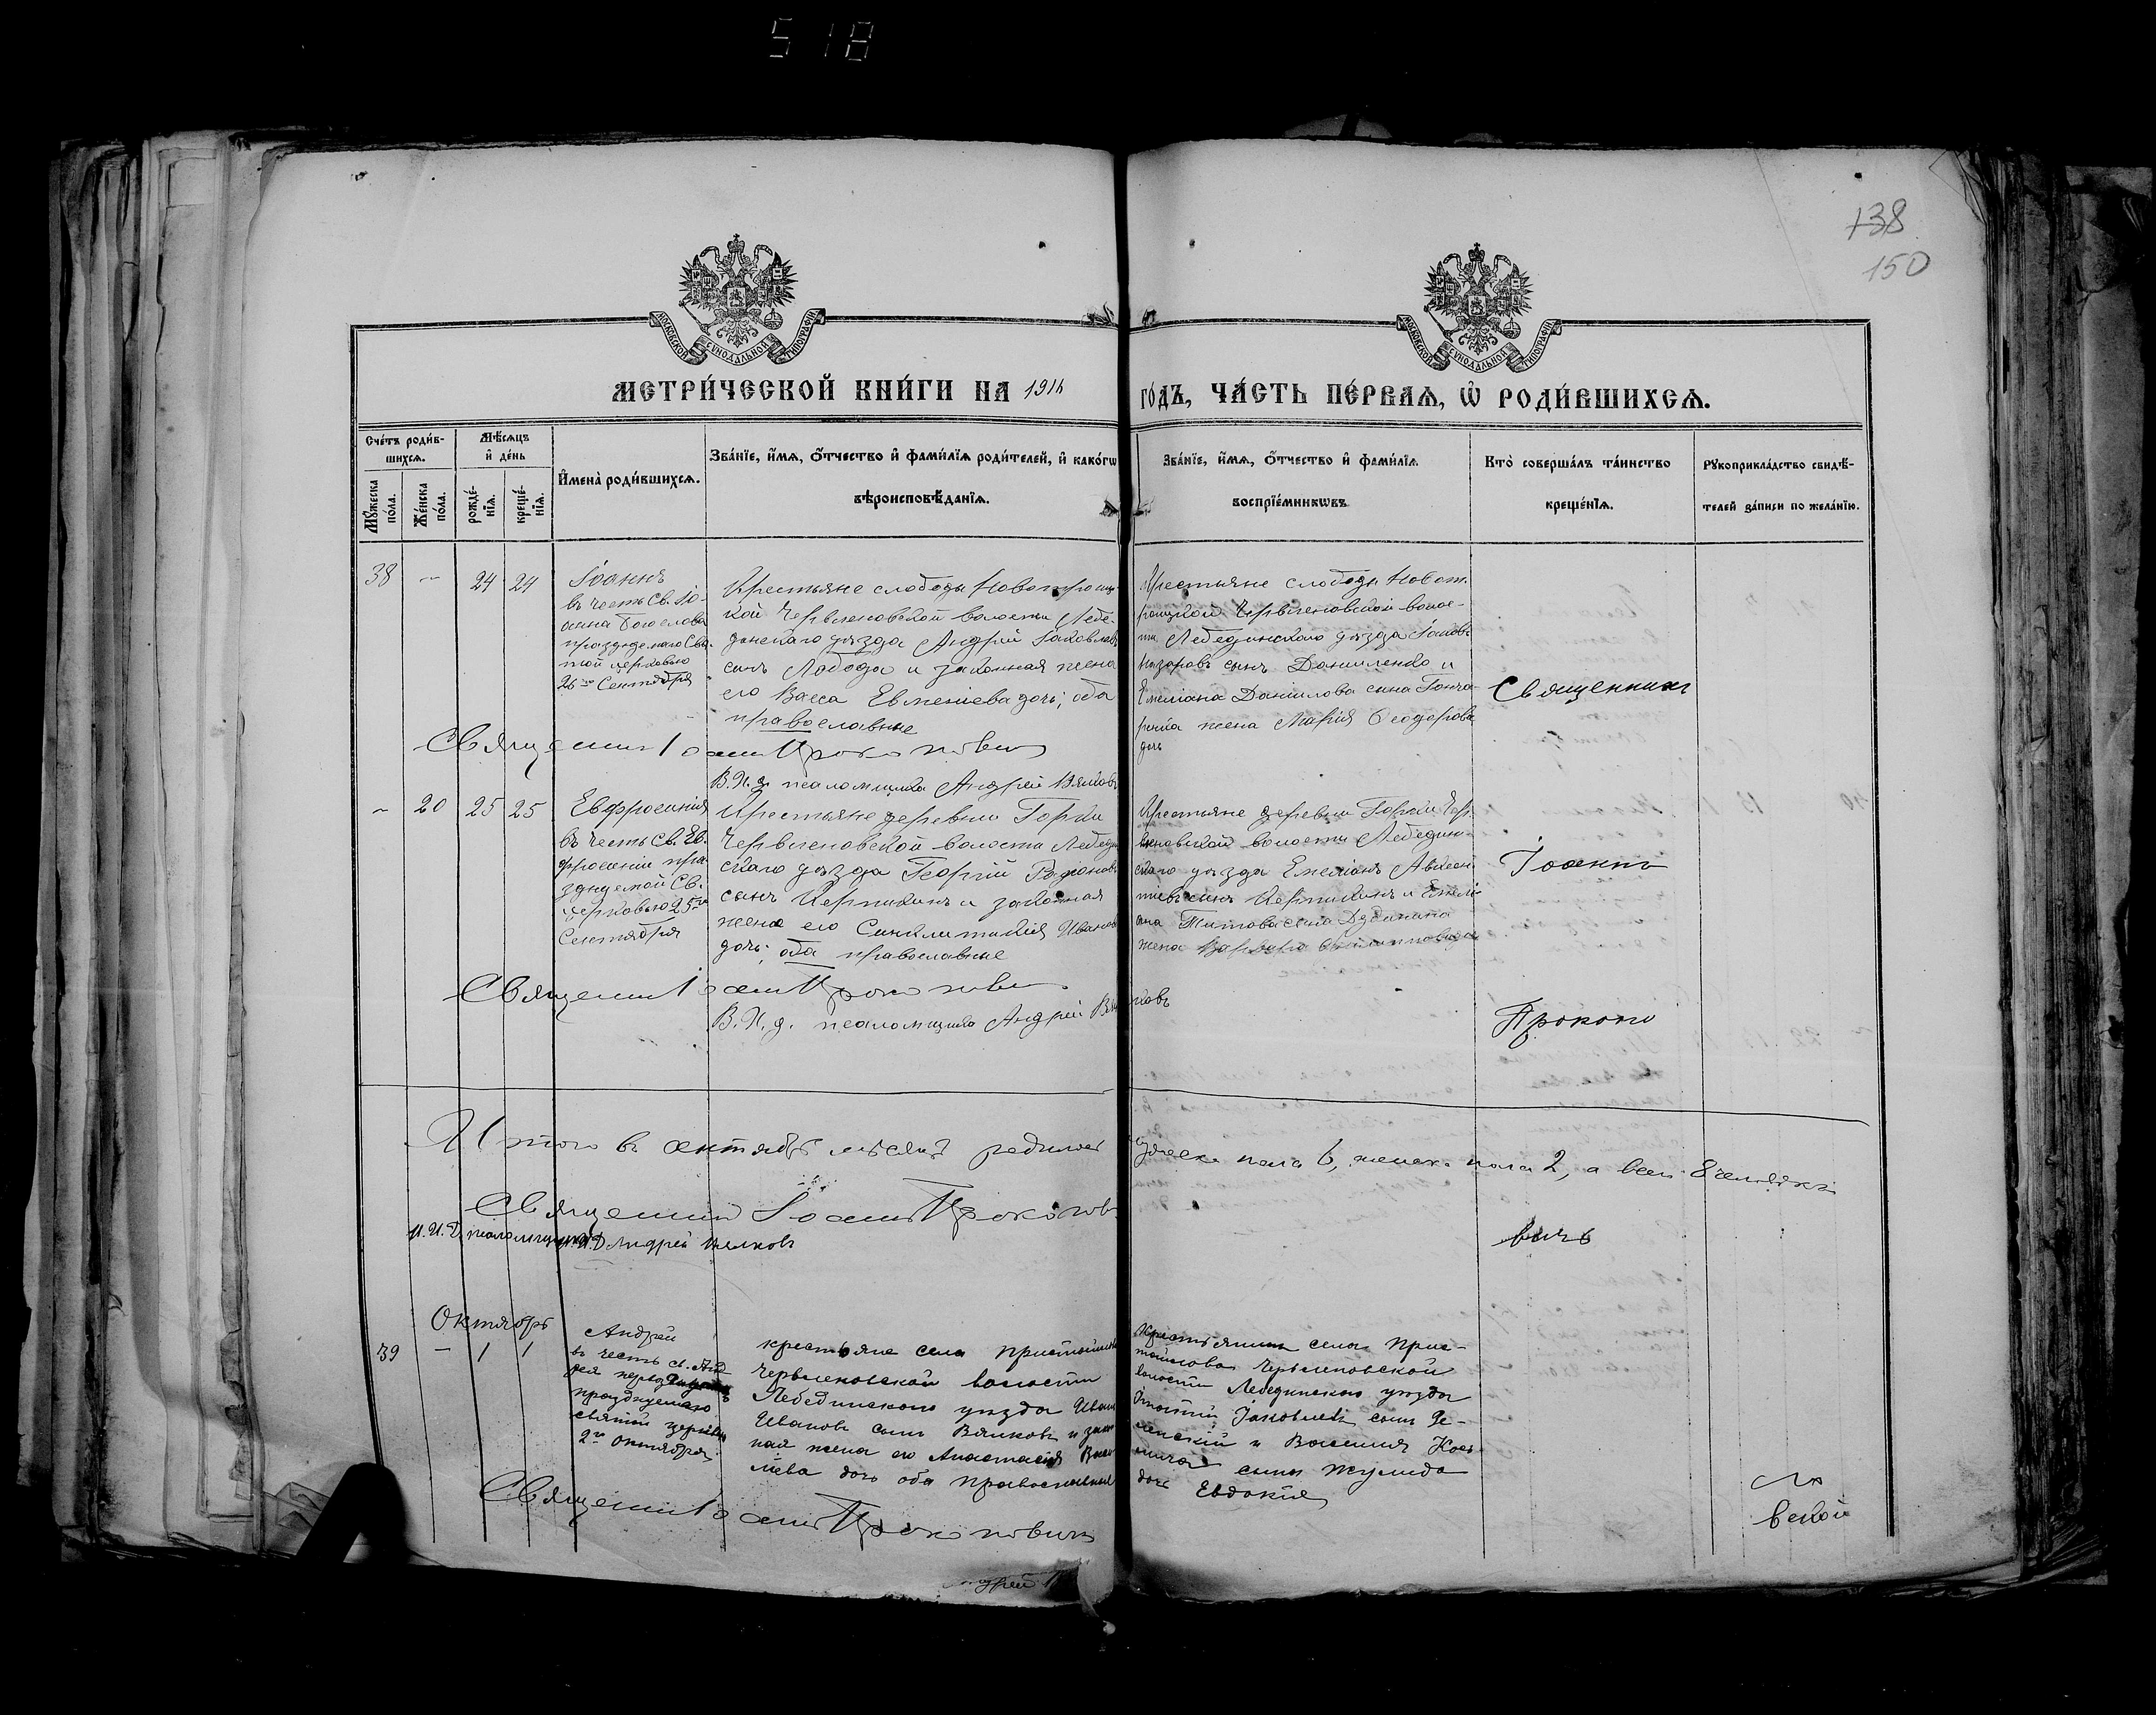 518
138
150
МОСКОВСКОЙ СУНОДАЛЬНОЙ ТИПОГРАФІИ
МОСКОВСКОЙ СУНОДАЛЬНОЙ ТИПОГРАФІИ
МЕТРИ́ЧЕСКОЙ КНИ́ГИ НА 1914
ГО́ДЪ, ЧА́СТЬ ПЕ́РВАѦ, Ѡ҆ РОДИ́ВШИХСѦ.
Сче́тъ роди́в-
шихсѧ.
Мѣ́сѧцъ
и҆ де́нь
Мꙋ́жеска
по́ла.
Же́нска
по́ла.
рожде́-
нїѧ.
креще́-
нїѧ.
И҆мена̀ роди́вшихсѧ.
Зва́нїе, и҆́мѧ, ѻ҆́тчество и҆ фами́лїѧ роди́телей, и҆ како́гѡ
вѣроисповѣ́данїѧ.
Зва́нїе, и҆́мѧ, ѻ҆́тчество и҆ фами́лїѧ
воспрїе́мникѡвъ
Кто̀ соверша́лъ та́инство
креще́нїѧ.
Рꙋкоприкла́дство свидѣ́-
телей за́писи по жела́нїю.
38 – 24 24
Іоаннъ
въ честь Св. Іо-
анна Богослова
празднуемаго Свя-
той церковью
26го Сентября
Крестьяне слободы Новотроиц-
кой Червленовской волости Лебе-
динскаго уѣзда Андрей Іаковлевъ
сынъ Лобода и законная жена
его Васса Евменіева дочь; оба
православные
Крестьяне слободы Новот-
роицкой Червленовской волос-
ти Лебединскаго уѣзда Іаковъ
Назаровъ сынъ Даниленко и
Емеліана Даніилова сына Гонча-
жена Марія Ѳеодорова
дочь
Священникъ
Священникъ Іоаннъ Прокоповичъ
В. И. д. псаломщика Андрей Вялковъ
– 20 25 25
Евфросинія
въ честь Св. Ев-
фросиніи пра-
зднуемой Св.
церковью 25го
Сентября
Крестьяне деревни Горки
Червленовской волости Лебедин-
скаго уѣзда Георгій Родіоновъ
сынъ и законная
жена его Синклитикія Иванова
дочь; оба православные
Крестьяне деревни Горки Чер-
вленовской волости Лебедин-
скаго уѣзда Емеліанъ Авксен-
тіевъ сынъ и Емелі-
ана Титова сына
жена Варвара
Іоаннъ
Священникъ Іоаннъ Прокоповичъ
В. И. д. псаломщика Андрей Вялковъ
Прокопо
Итого въ сентябрѣ мѣсяцѣ родилось
мужеска пола 6, женска пола 2, а всего 8 человѣкъ
Священникъ Іоаннъ Прокопов
вичъ
И. Д. псаломщика Андрей Вялковъ
Октябрь
39 – 1 1
Андрей
въ честь св. Анд-
рея
празднуемаго
святой церковью
2го октября
крестьяне села Пристайлова
Червленовской волости
Лебединскаго уѣзда Иванъ
Ивановъ сынъ Вялковъ и закон-
ная жена его Анастасія Васи-
ліева дочь оба православные
Крестьянинъ села Прис-
тайлова Червленовской
волости Лебединскаго уѣзда
Іаковлевъ сынъ
и Василія Кось-
мича сына
дочь Евдокія
Священникъ Іоаннъ Прокоповичъ
вской